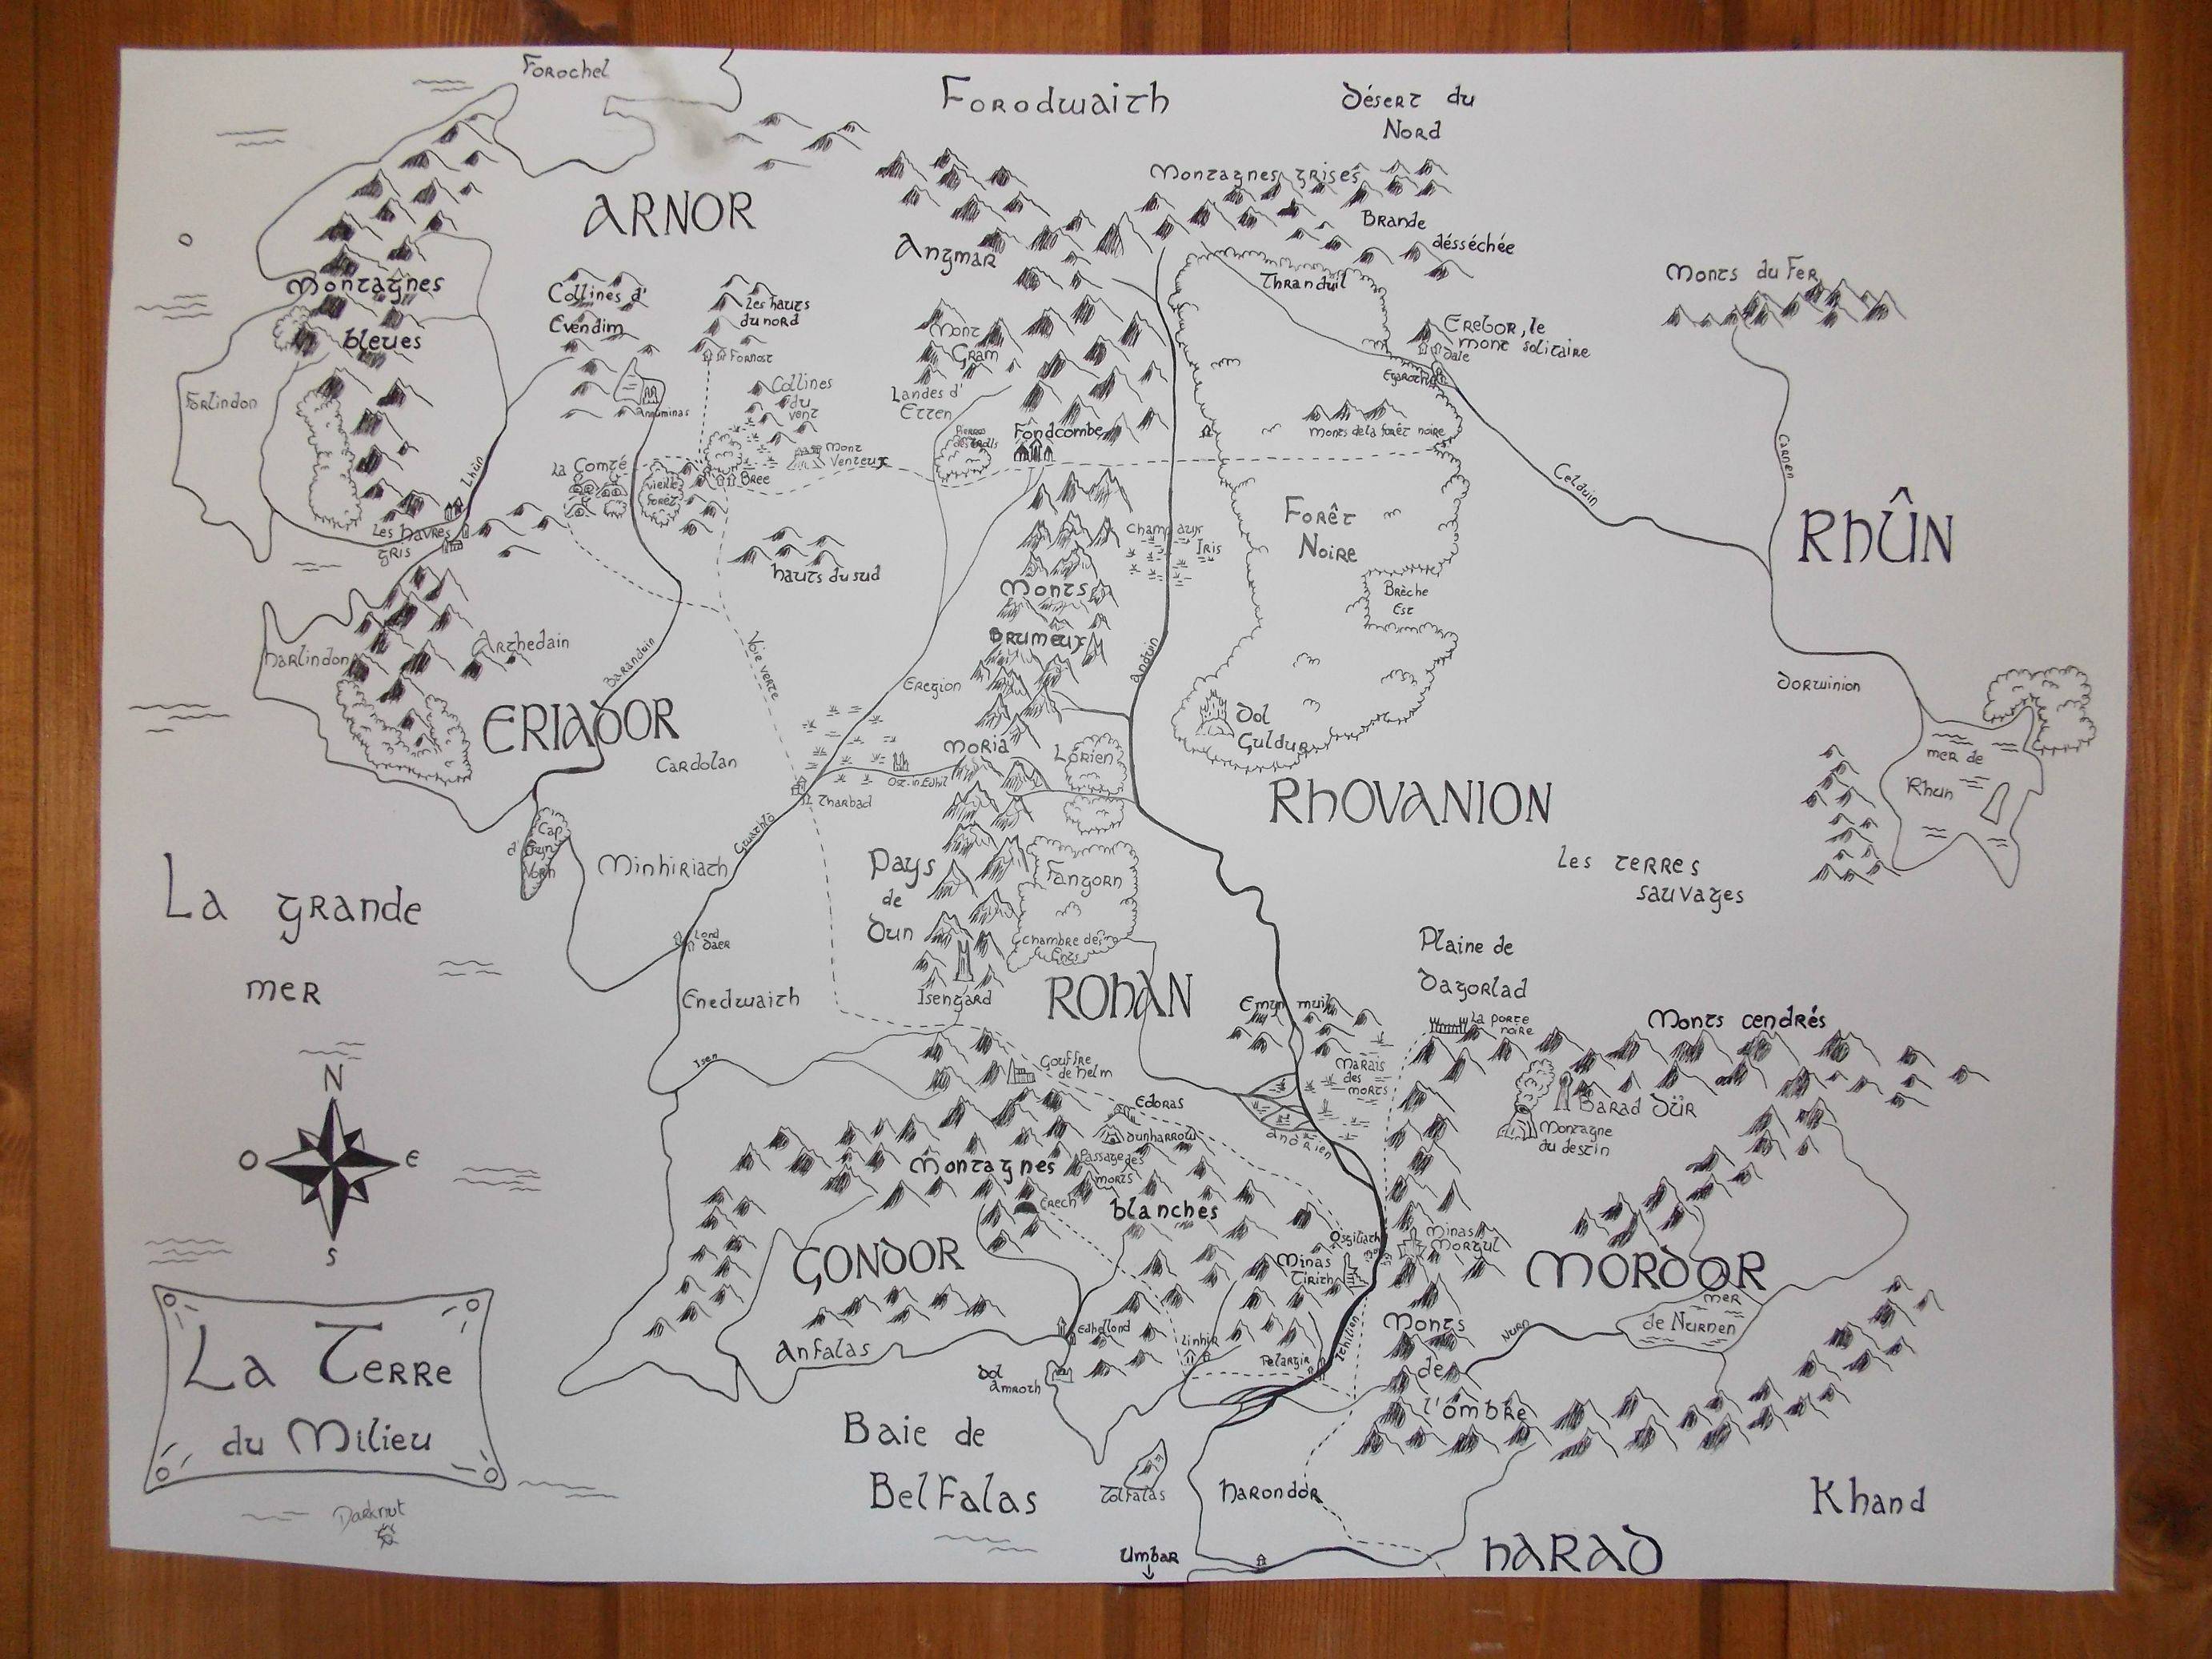 Forochel
Forodwaith
Désert du
Nord
ARNOR
Montagnes grises
Brande
désséchée
Angmar
Thranduil
Monts du Fer
Montagnes
bleues
Collines d'
Evendim
Les hauts
du nord
Fornost
Mont
Gram
Erebor, le
mont solitaire
Dale
Egaroth
Forlindon
Annuminas
Collines
du
vent
Landes d'
Etten
Pierres
des trolls
Fondcombe
monts de la forêt noire
Mont
Venteux
La Comté
Vieille
forêt
Bree
Lhûn
Carnen
Celduin
RHÛN
Les havres
gris
Forêt
Noire
Champ aux
Iris
hauts du sud
Monts
Brumeux
Brèche
Est
harlindon
Arthedain
Baranduin
Voie verte
Eregion
Anduin
Dorwinion
ERIADOR
Cardolan
Dol
Guldur
Moria
Lórien
Ost-in-Edhil
Tharbad
mer de
Rhun
RHOVANION
Cap
d'Eryn
Vorn
Minhiriath
Gwathlo
Pays
de
Dun
Fangorn
Les terres
sauvages
La grande
mer
Lond
Daer
Chambre des
Ents
Plaine de
Dagorlad
Enedwaith
Isengard
ROHAN
Emyn muil
La porte
noire
Monts cendrés
Isen
Gouffre
de helm
Marais
des
morts
N
O
E
S
Edoras
Dunharrow
Barad Dûr
Montagne
du destin
Montagnes
blanches
Passage des
morts
Erech
GONDOR
Osgiliath
Minas
Tirith
Minas
Morgul
MORDOR
mer
de Nurnen
Nurn
Anfalas
Edhellond
Linhir
Pelargir
Ithilien
Monts
de
l'ombre
Dol
Amroth
La Terre
du Milieu
Baie de
Belfalas
Tolfalas
harondor
Khand
Darknut
Umbar
hARAD